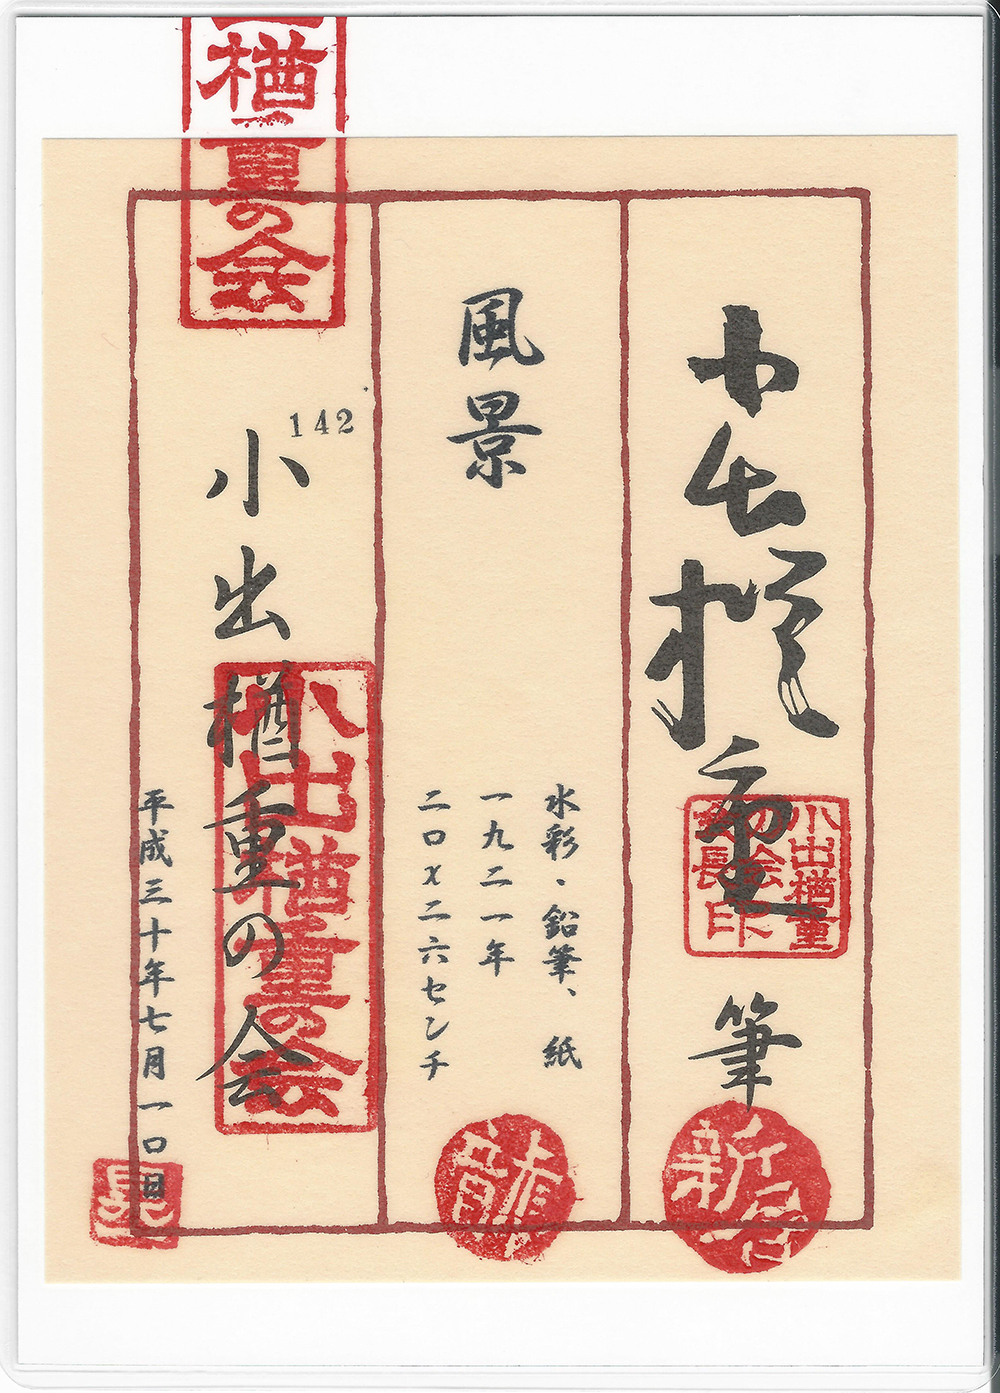 小出楢重
筆
小出楢重の会会長印
風景
水彩・鉛筆、紙
一九二一年
二〇x二六センチ
142
小出楢重の会
小出楢重の会
楢重の会
平成三十年七月一〇日